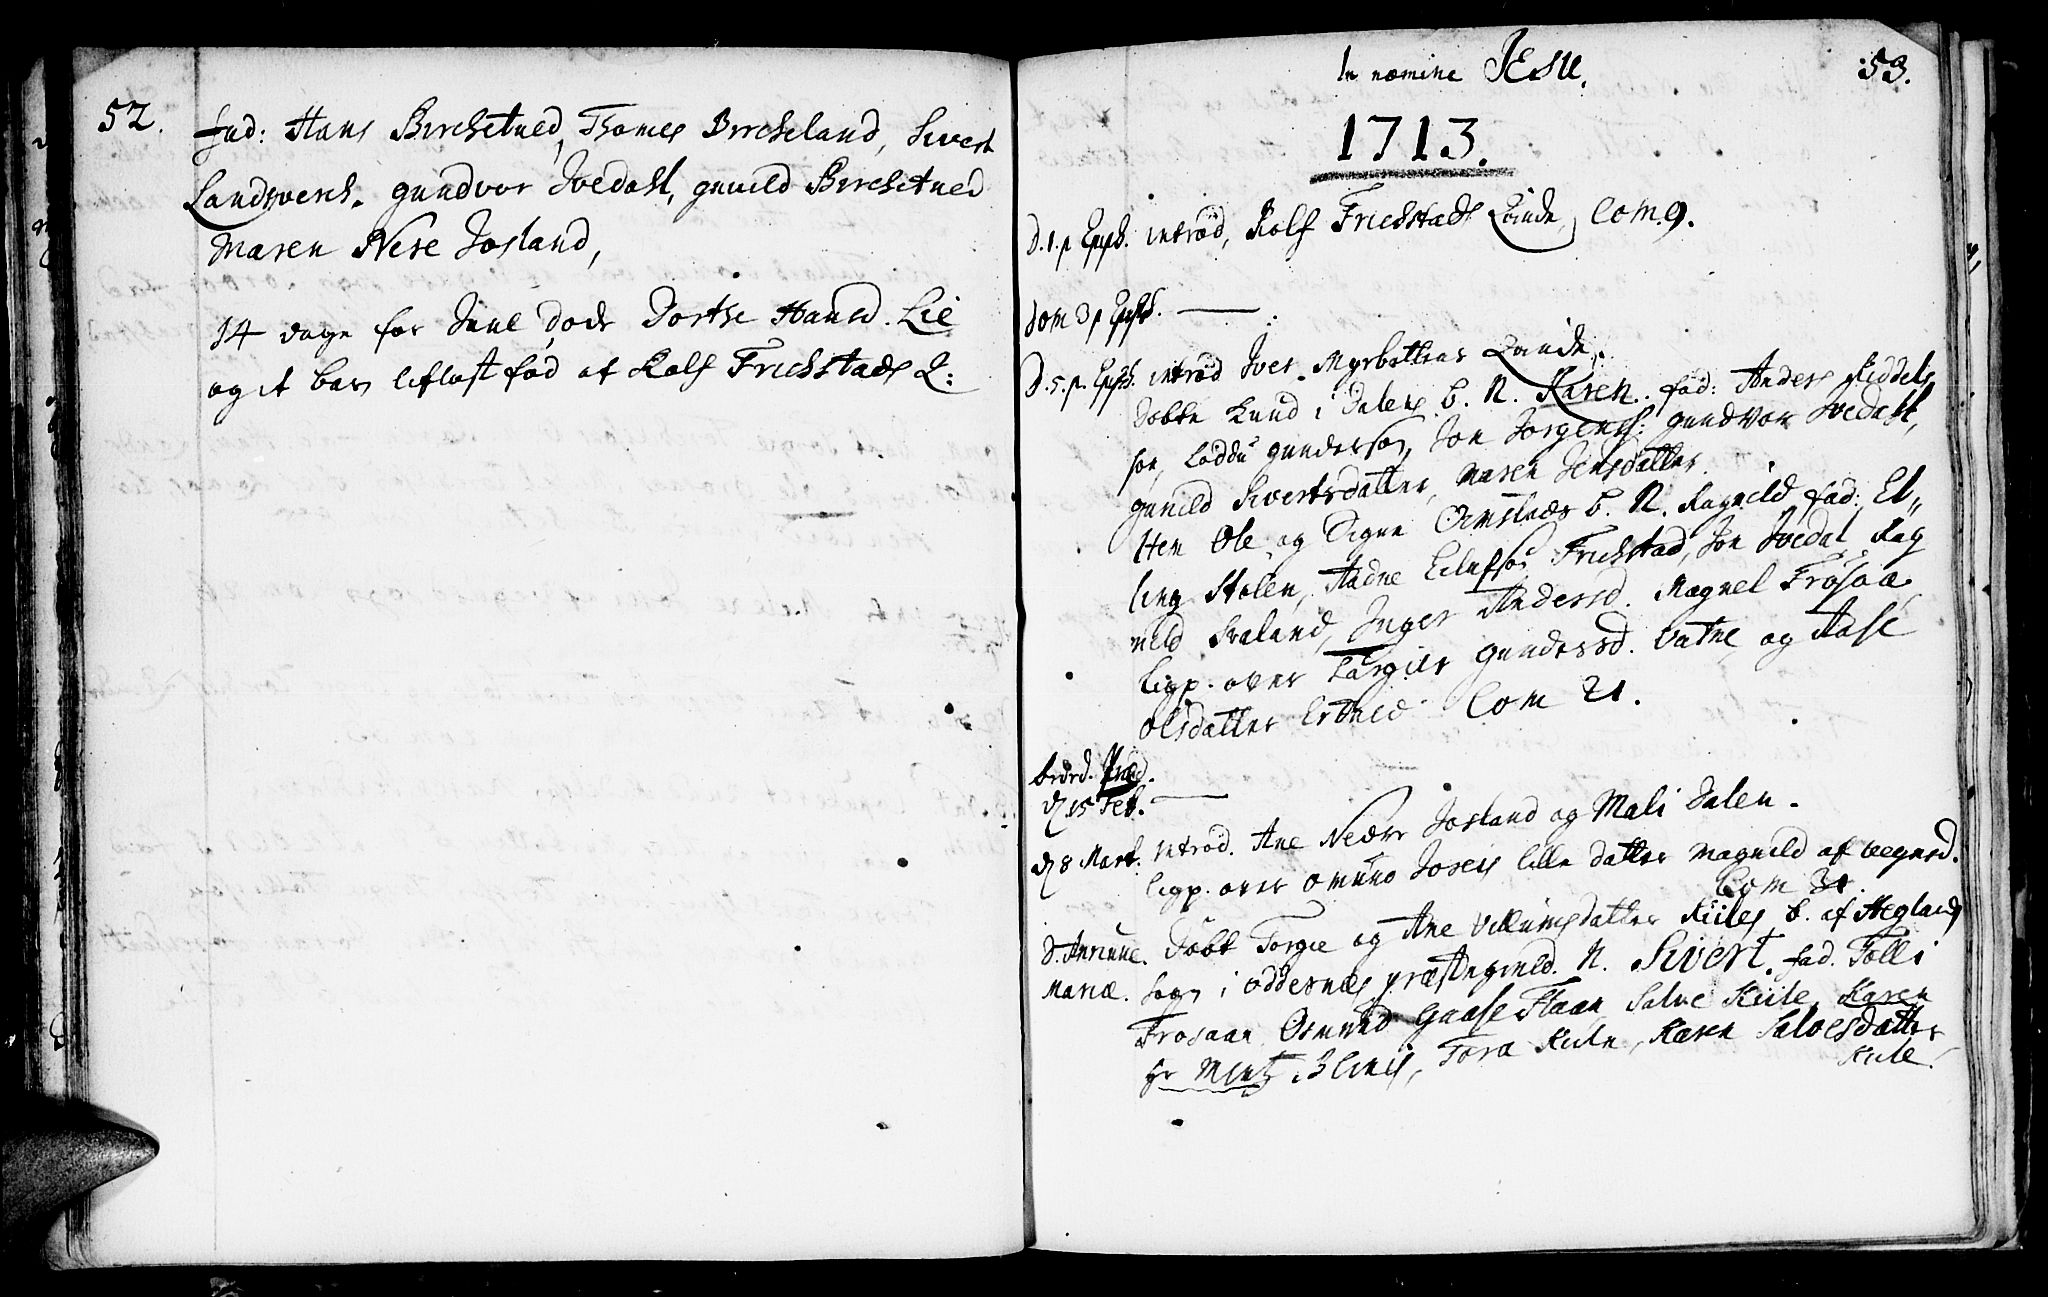 52.
fad: Hans Birchetued, Thomes Bircheland, Sivert
Landsverck. gundvor Ivedall, gunild Birchetued
Maren Nere Josland,
14 dage for Juul døde Dorthe Hansd. Lie
og it barn lifløst fød af Rolf Frichstads Q:
53.
In nomine JESU.
1713.
D. 1. p Epiph. introd, Rolf Frichstads Qvinde, Com 9.
Dom 3 p Epiph. —
D. 5. p. Epiph. introd Iver Myrbottens Qvinde.
Døbte Knud i Dalens b. N. Karen. fad: Anders
søn, Gundersøn, Jon Jørgenss: gundvor Ivedall,
gunild Sivertsdatter, Maren Jensdatter.
Item Ole og Signe b. N. Ragnild fad: El„
ling Stolen, Aadne Eilufsøn Frichstad, Jon Ivedal, Rag
nild Fraland, Inger Andersd. Magnel Frøsaa
ligp. over Targier Gundersd. Vatne og Aase
Olsdatter Com 21.
Ordin. Præd.
d 15 Feb. —
d 8 Mart. Introd. Ane Nedre Josland og Mali Dalen.
ligp. over Omund Joseis lille datter Magnild af Vegusd.
Com 31.
D. Annunc. Døbt Torgie og Ane Villumsdatter Kiiles b. af Hegland
Mariæ. Sogn i Oddernæs præstegield. N. Sivert. fad. Tolli
Frosaan, Osmund Gaase Flaan, Salve Kiile, Karen
Hr Mentz Blenis, Tora Kiile, Karen Salvesdatter
Kiile.